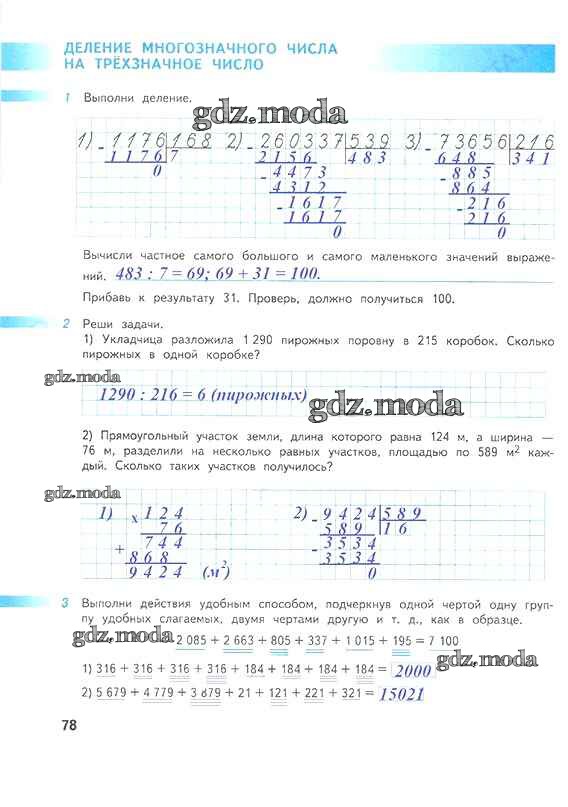 ДЕЛЕНИЕ МНОГОЗНАЧНОГО ЧИСЛА
НА ТРЁХЗНАЧНОЕ ЧИСЛО
1 Выполни деление.
gdz.moda
1) - 1176 168 2) - 260337 539 3) - 73656 216
1176 7 2156 483 648 341
0 - 4473 - 885
4312 864
- 1617 - 216
1617 216
0 0
Вычисли частное самого большого и самого маленького значений выраже-
ний. 483 : 7 = 69; 69 + 31 = 100.
Прибавь к результату 31. Проверь, должно получиться 100.
2 Реши задачи.
1) Укладчица разложила 1 290 пирожных поровну в 215 коробок. Сколько
пирожных в одной коробке?
gdz.moda
1290 : 216 = 6 (пирожных)
gdz.moda
2) Прямоугольный участок земли, длина которого равна 124 м, а ширина —
76 м, разделили на несколько равных участков, площадью по 589 м² каж-
дый. Сколько таких участков получилось?
gdz.moda
1) x 124 2) - 9424 589
76 589 16
+ 744 - 3534
868 3534
9424 (м²) 0
3 Выполни действия удобным способом, подчеркнув одной чертой одну груп-
пу удобных слагаемых, двумя чертами другую и т. д., как в образце.
gdz.moda
2 085 + 2 663 + 805 + 337 + 1 015 + 195 = 7 100
gdz.moda
1) 316 + 316 + 316 + 316 + 184 + 184 + 184 + 184 = 2000
2) 5 679 + 4 779 + 3 879 + 21 + 121 + 221 + 321 = 15021
78